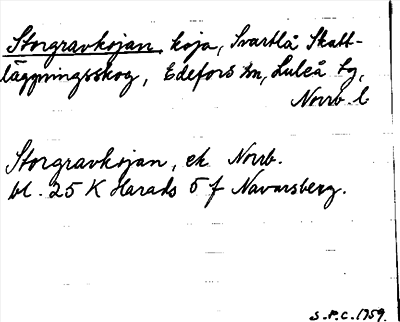 Storgravkojan, koja, Svartlå Skatt-
läggningsskog, Edefors sn, Luleå tg,
Norrb. l
Storgravkojan, ek Norrb.
bl. 25 K Harads 5 f Navarsberg.
S.P.C. 1759.